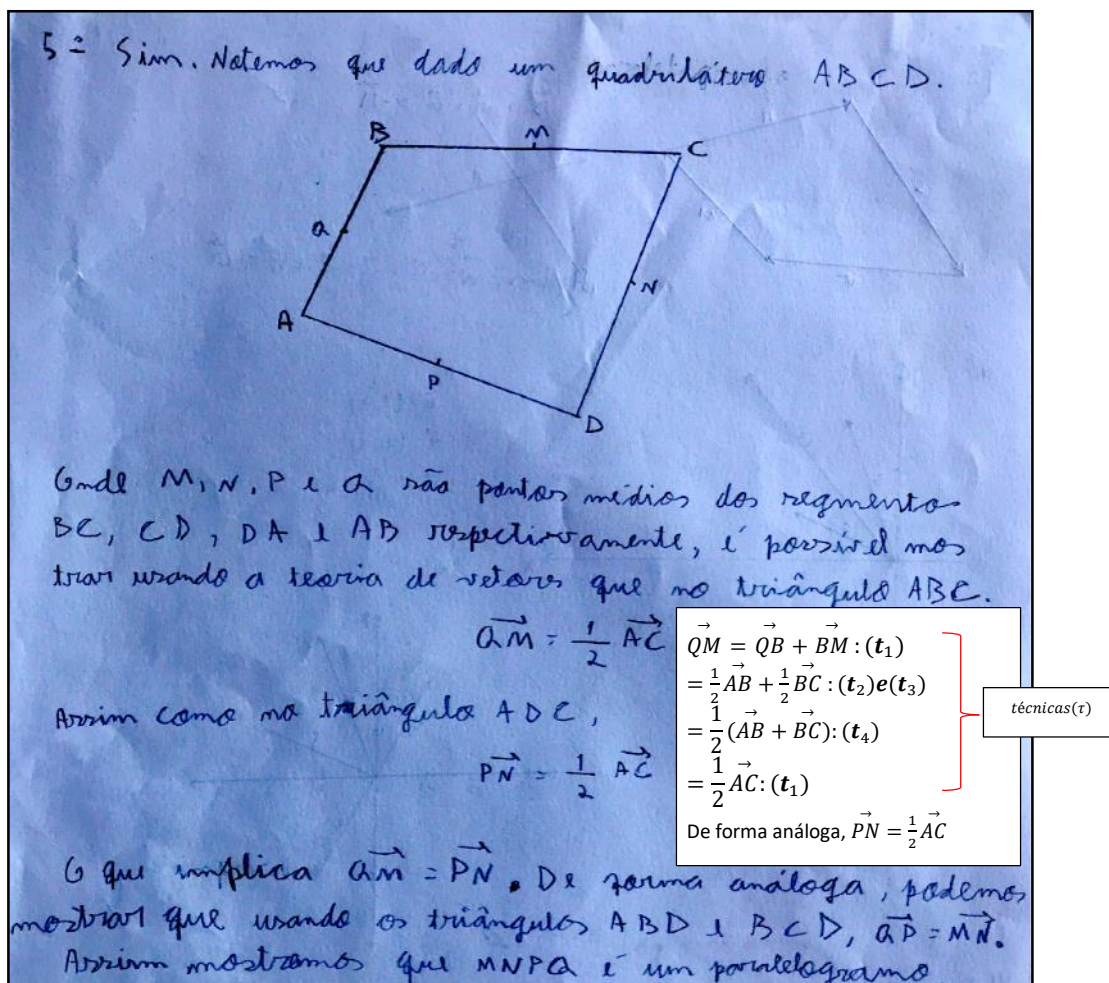 5ª Sim. Notemos que dado um quadrilátero ABCD.
B
M
C
Q
N
A
P
D
Onde M, N, P e Q são pontos médios dos segmentos
BC, CD, DA e AB respectivamente, é possível mos
trar usando a teoria de vetores que no triângulo ABC.
\vec{QM} = \frac{1}{2} \vec{AC}
Assim como no triângulo ADC,
\vec{PN} = \frac{1}{2} \vec{AC}
\vec{QM} = \vec{QB} + \vec{BM} : (t₁)
= \frac{1}{2}\vec{AB} + \frac{1}{2}\vec{BC} : (t₂)e(t₃)
= \frac{1}{2}(\vec{AB} + \vec{BC}): (t₄)
= \frac{1}{2}\vec{AC}: (t₁)
De forma análoga, \vec{PN} = \frac{1}{2}\vec{AC}
técnicas(τ)
O que implica \vec{QM} = \vec{PN}. De forma análoga, podemos
mostrar que usando os triângulos ABD e BCD, \vec{QP} = \vec{MN}.
Assim mostramos que MNPQ é um paralelogramo